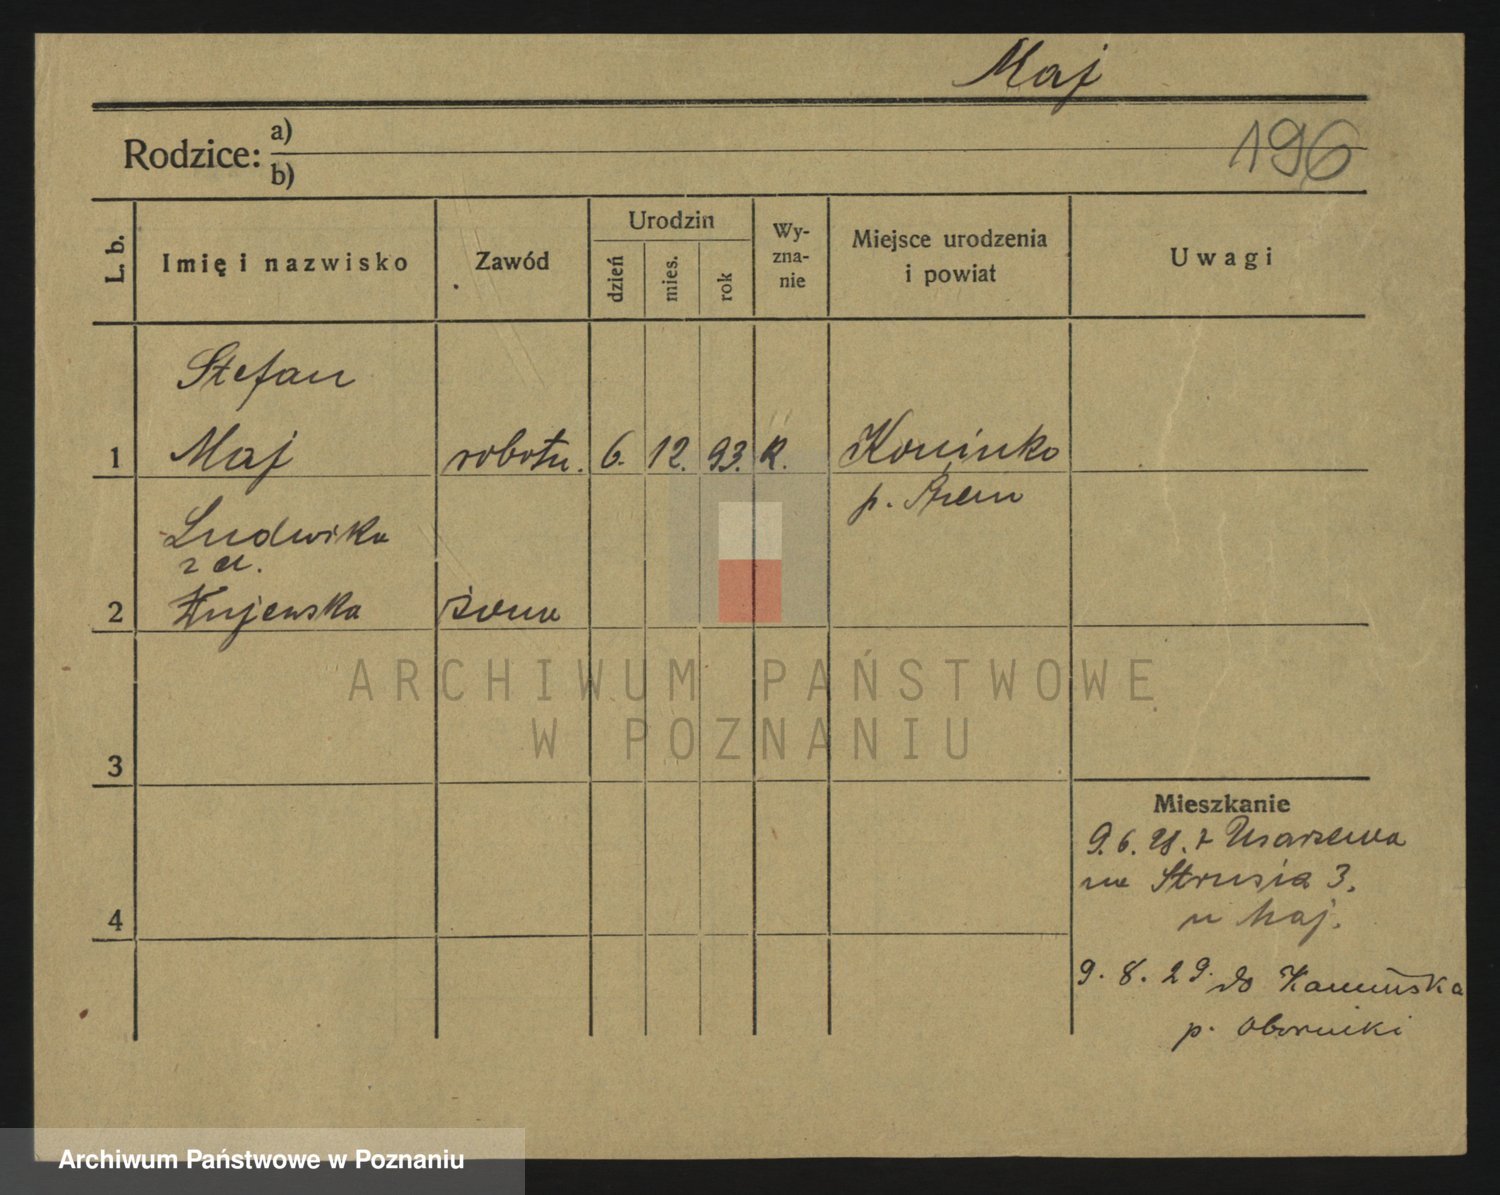 Maj
196
Rodzice: a)
b)
L. b.
Imię i nazwisko
Zawód
Urodzin
dzień
mies.
rok
Wy-
zna-
nie
Miejsce urodzenia
i powiat
Uwagi
Stefan
1 Maj robotn. 6. 12. 93. K. Koninko
p. Śrem
Ludwika
z d.
2 Kujewska żona
ARCHIWUM PAŃSTWOWE
W POZNANIU
3
Mieszkanie
9. 6. 28. z
na Strusia 3.
u Maj.
4
9. 8. 29. do Kamińska
p. Oborniki
Archiwum Państwowe w Poznaniu